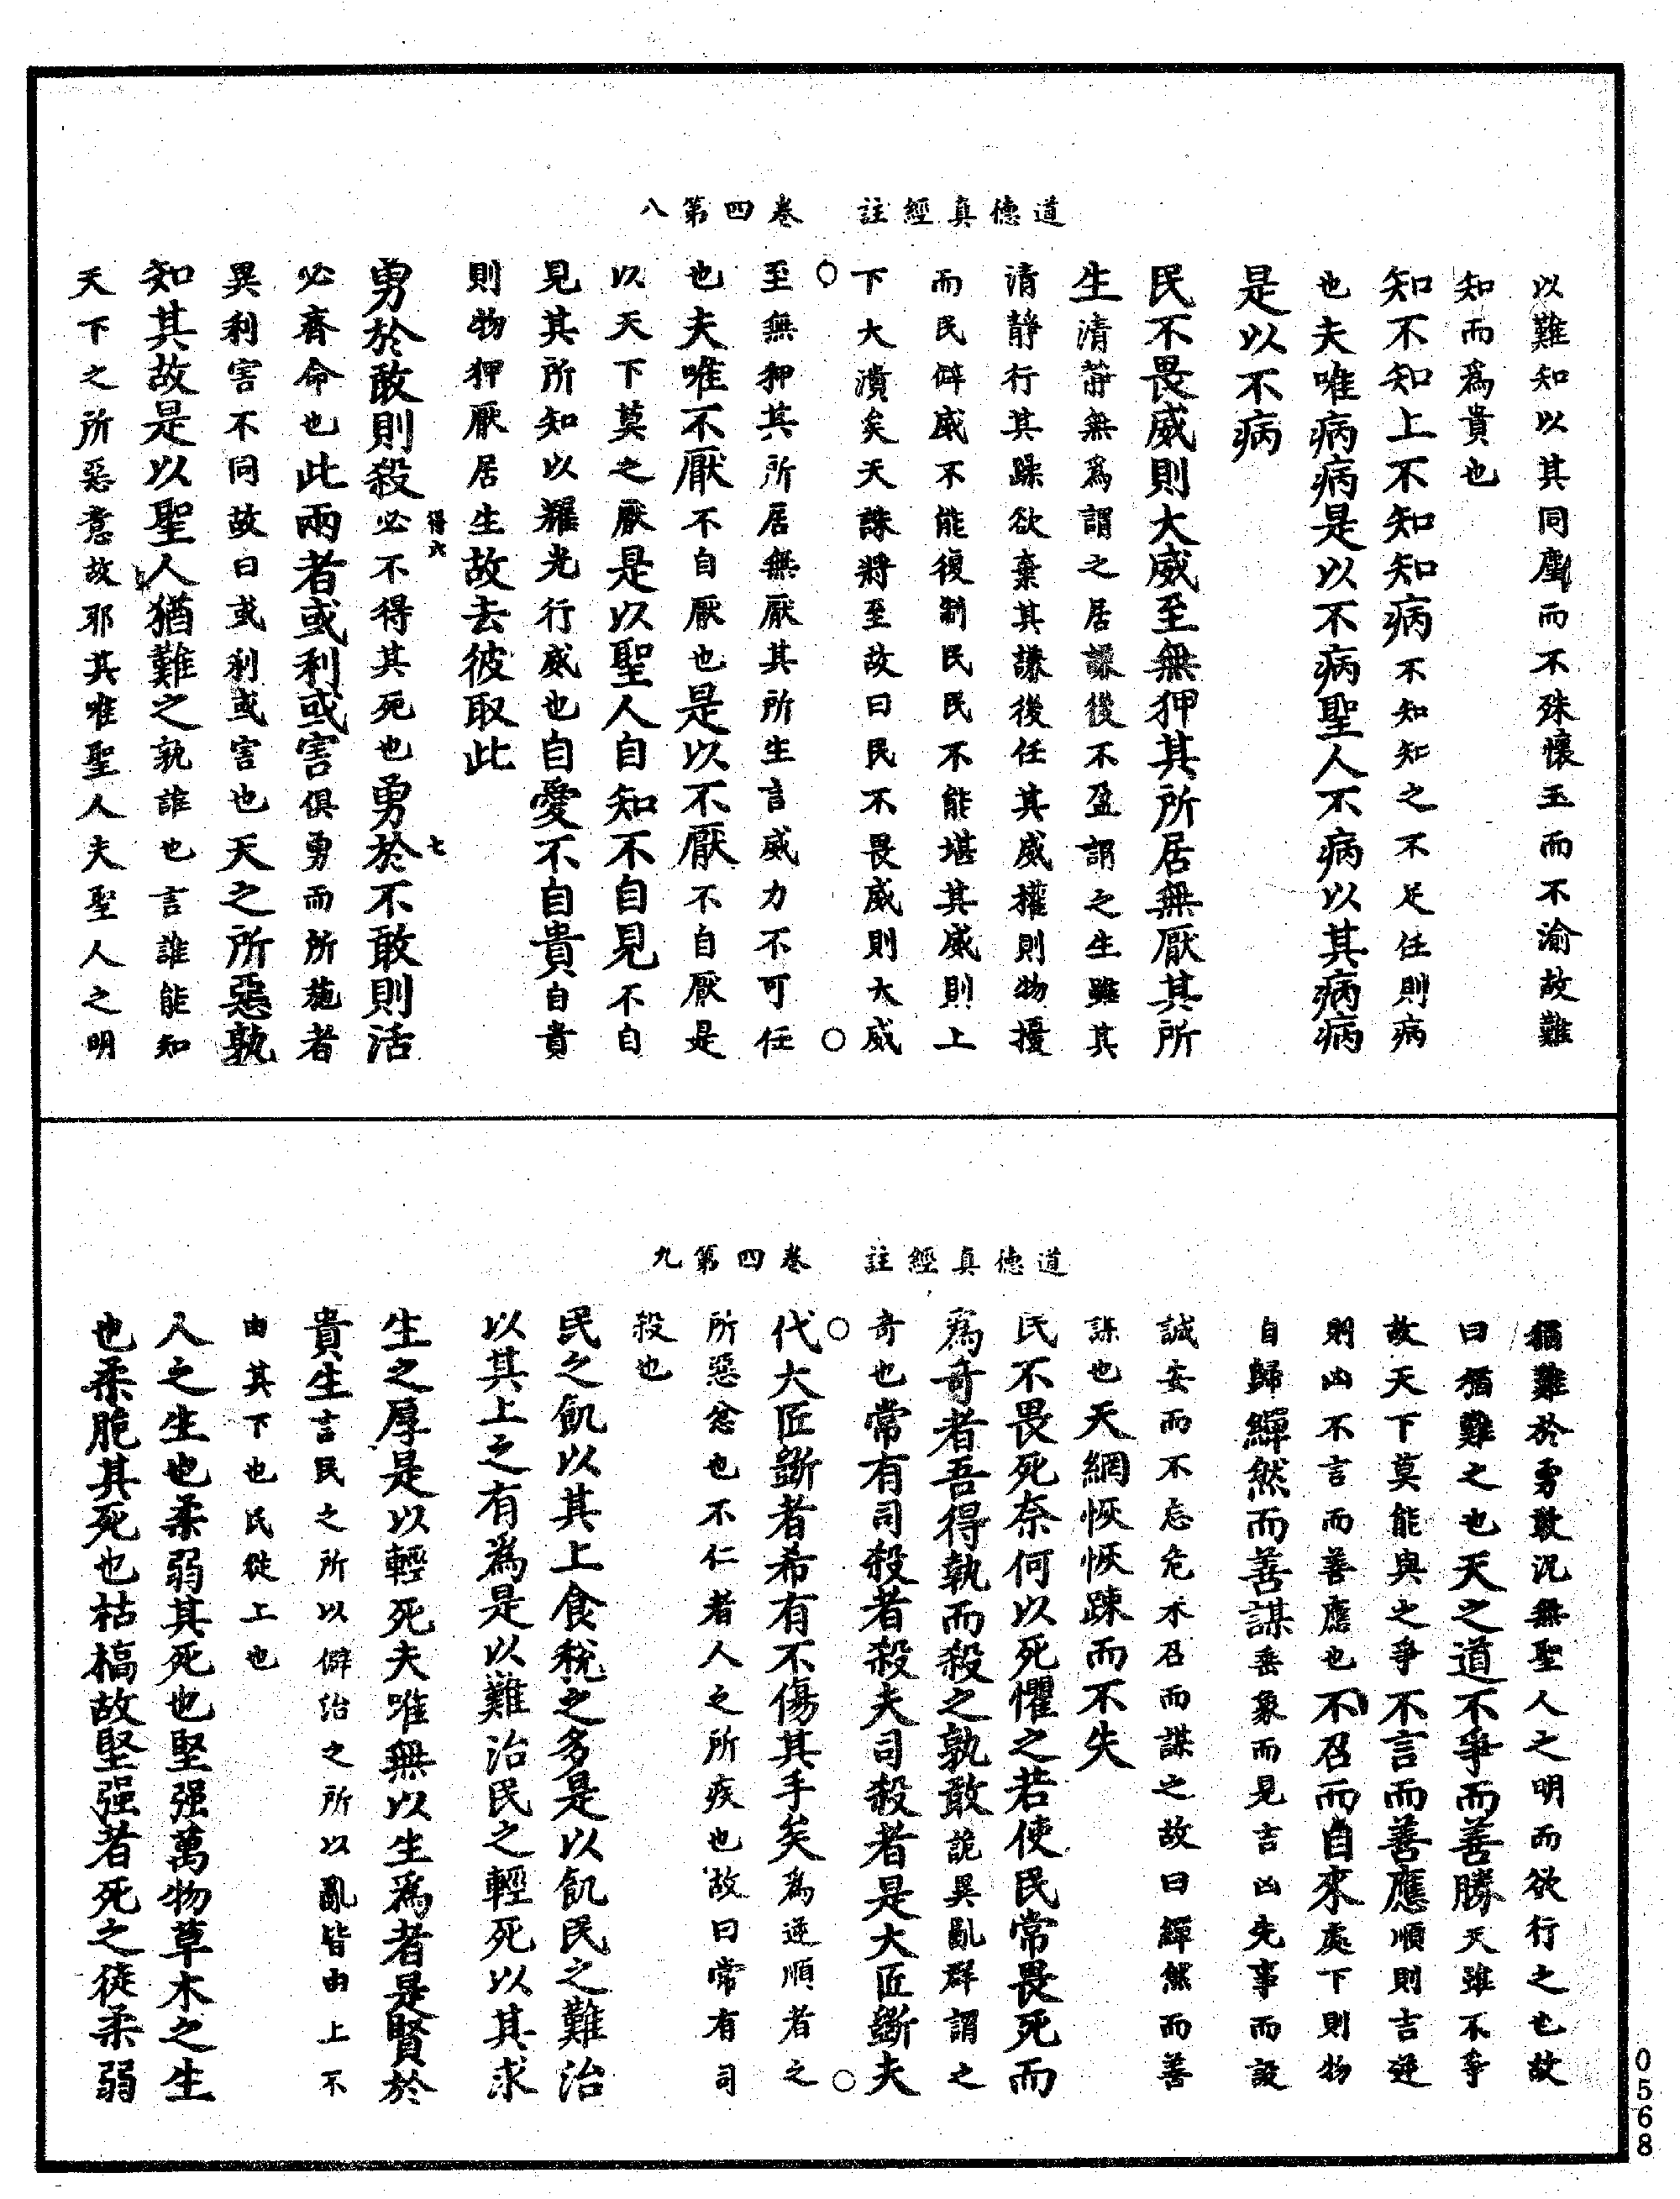 道德真經註　卷四第八
以難知以其同塵而不殊懷玉而不渝故難
知而為貴也
知不知上不知知病不知知之不足任則病
也夫唯病病是以不病聖人不病以其病病
是以不病
民不畏威則大威至無狎其所居無厭其所
生清静無為謂之居謙後不盈謂之生雖其
清靜行其躁欲棄其謙後任其威權則物擾
而民僻威不能復制民民不能堪其威則上
下大潰矣天誅將至故曰民不畏威則大威
至無狎其所居無厭其所生言威力不可任
也夫唯不厭不自厭也是以不厭不自厭是
以天下莫之厭是以聖人自知不自見不自
見其所知以耀光行威也自愛不自貴自貴
則物狎厭居生故去彼取此
得六
七
勇於敢則殺必不得其死也勇於不敢則活
必齊命也此兩者或利或害俱勇而所施者
異利害不同故曰或利或害也天之所惡孰
知其故是以聖人猶難之孰誰也言誰能知
天下之所惡意故耶其唯聖人夫聖人之明
道德真經註　卷四第九
猶難於勇敢況無聖人之明而欲行之也故
曰猶難之也天之道不爭而善勝天雖不爭
故天下莫能與之爭不言而善應順則吉逆
則凶不言而善應也不召而自來處下則物
自歸繟然而善謀垂象而見吉凶先事而設
誠安而不忘危未召而謀之故曰繟然而善
謀也天網恢恢踈而不失
民不畏死奈何以死懼之若使民常畏死而
為奇者吾得執而殺之孰敢詭異亂群謂之
奇也常有司殺者殺夫司殺者是大匠斲夫
代大匠斲者希有不傷其手矣為逆順者之
所惡忿也不仁者人之所疾也故曰常有司
殺也
民之飢以其上食稅之多是以飢民之難治
以其上之有為是以難治民之輕死以其求
生之厚是以輕死夫唯無以生為者是賢於
貴生言民之所以僻治之所以亂皆由上不
由其下也民從上也
人之生也柔弱其死也堅强萬物草木之生
也柔脆其死也枯槁故堅强者死之徒柔弱
0568